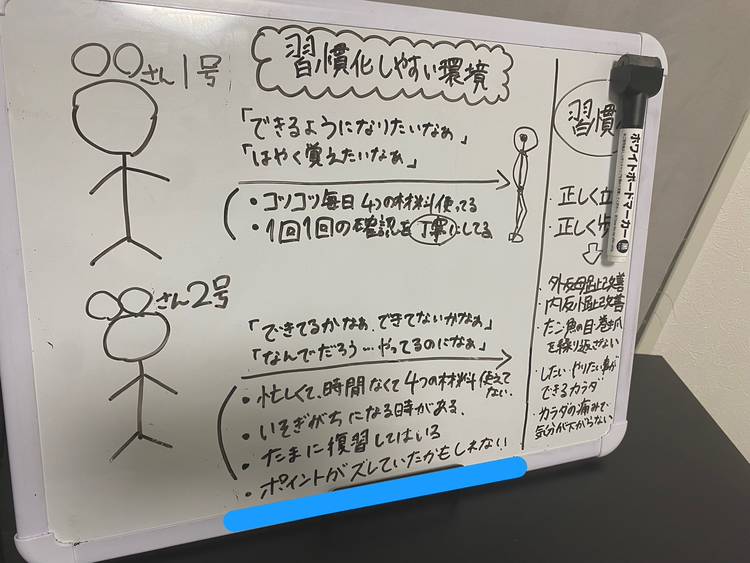 習慣化しやすい環境
○○さん1号
「できるようになりたいなぁ」
「はやく覚えたいなぁ」
・コツコツ毎日4つの材料使ってる
・1回1回の確認を丁寧にしてる
○○さん2号
「できてるかなぁ、できてないかなぁ」
「なんでだろう…やってるのになぁ」
・忙しくて、時間なくて4つの材料使えてない.
・いそぎがちになる時がある.
・たまに復習してはいる
・ポイントがズレていたかもしれない
習慣
・正しく立
・正しく歩
・外反母趾改善
・内反小趾改善
・タコ魚の目・巻き爪
を繰り返さない
・したい・やりたい事が
できるカラダ
・カラダの痛みで
気分が下がらない
ホワイトボードマーカー